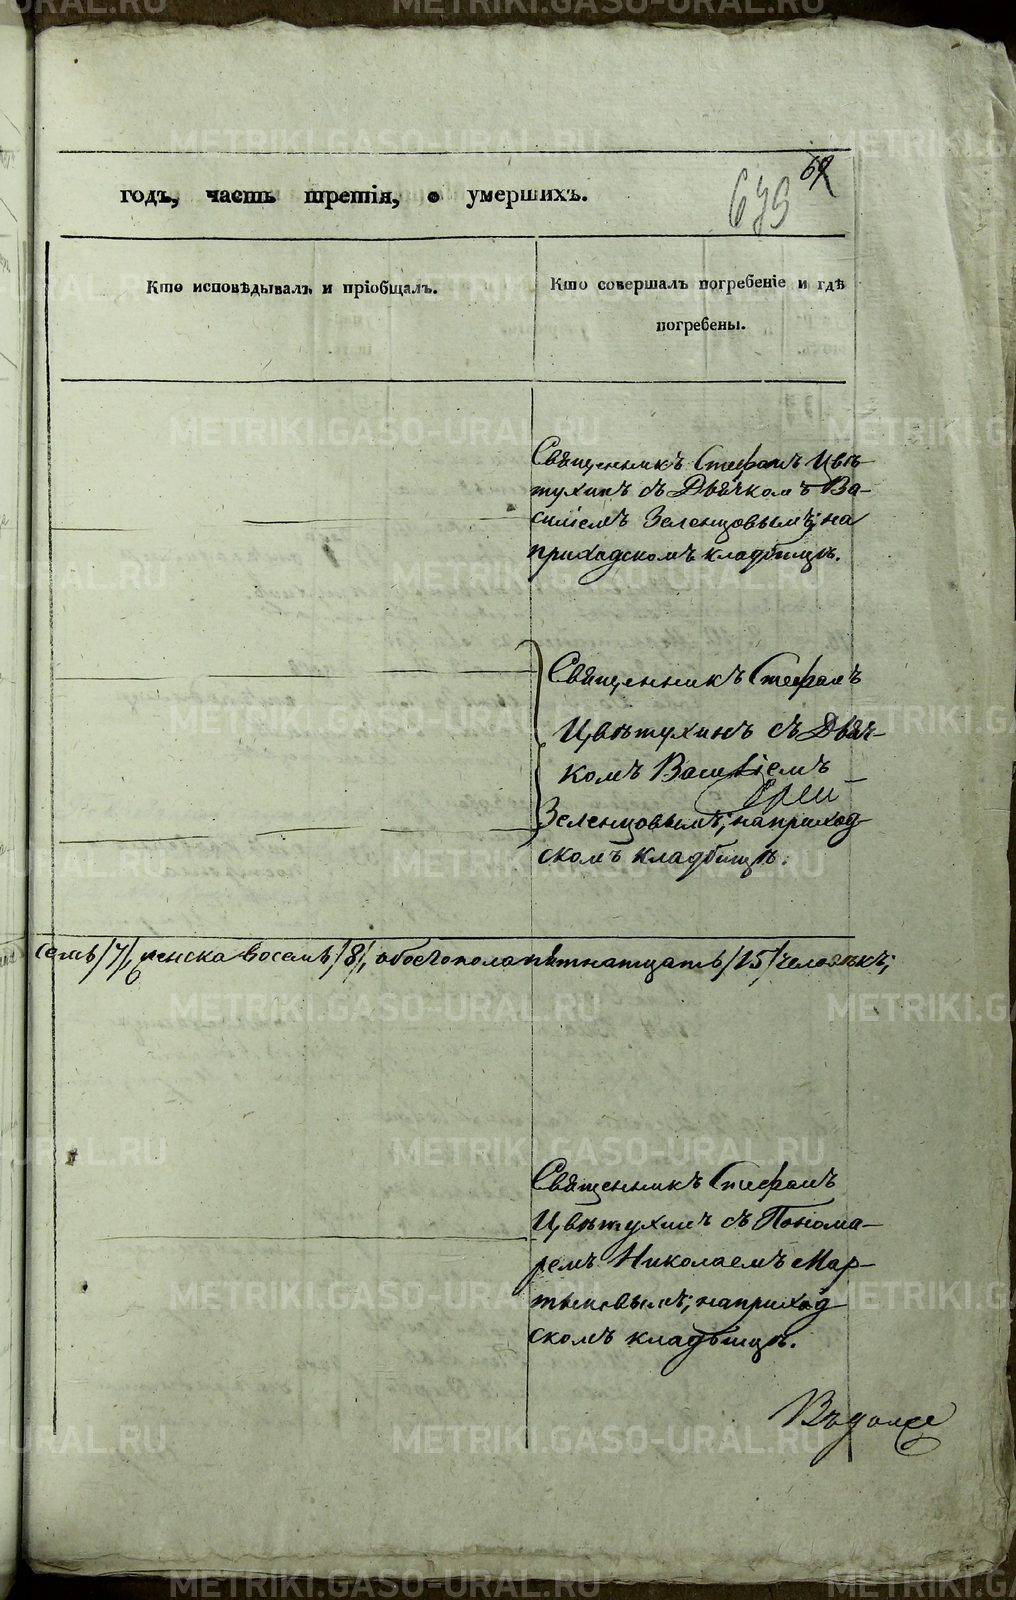 годъ, часть третія, о умершихъ.
69
679
Кто исповѣдывалъ и пріобщалъ.
Кто совершалъ погребеніе и гдѣ
погребены.
Священникъ Стефанъ Цвѣ-
тухинъ съ Дьячкомъ Ва-
силіемъ Зеленцовымъ; на
приходскомъ кладбищѣ.
Священникъ Стефанъ
Цвѣтухинъ съ Дьяч-
комъ Василіемъ
Зеленцовымъ; на приход
скомъ кладбищѣ.
семь /7/, женска восемь /8/, обоего пола пятнатцать /15/ человѣкъ;
Священникъ Стефанъ
Цвѣтухинъ съ Понома-
ремъ Николаемъ Мар-
тыновымъ; на приход
скомъ кладбищѣ.
METRIKI.GASO-URAL.RU